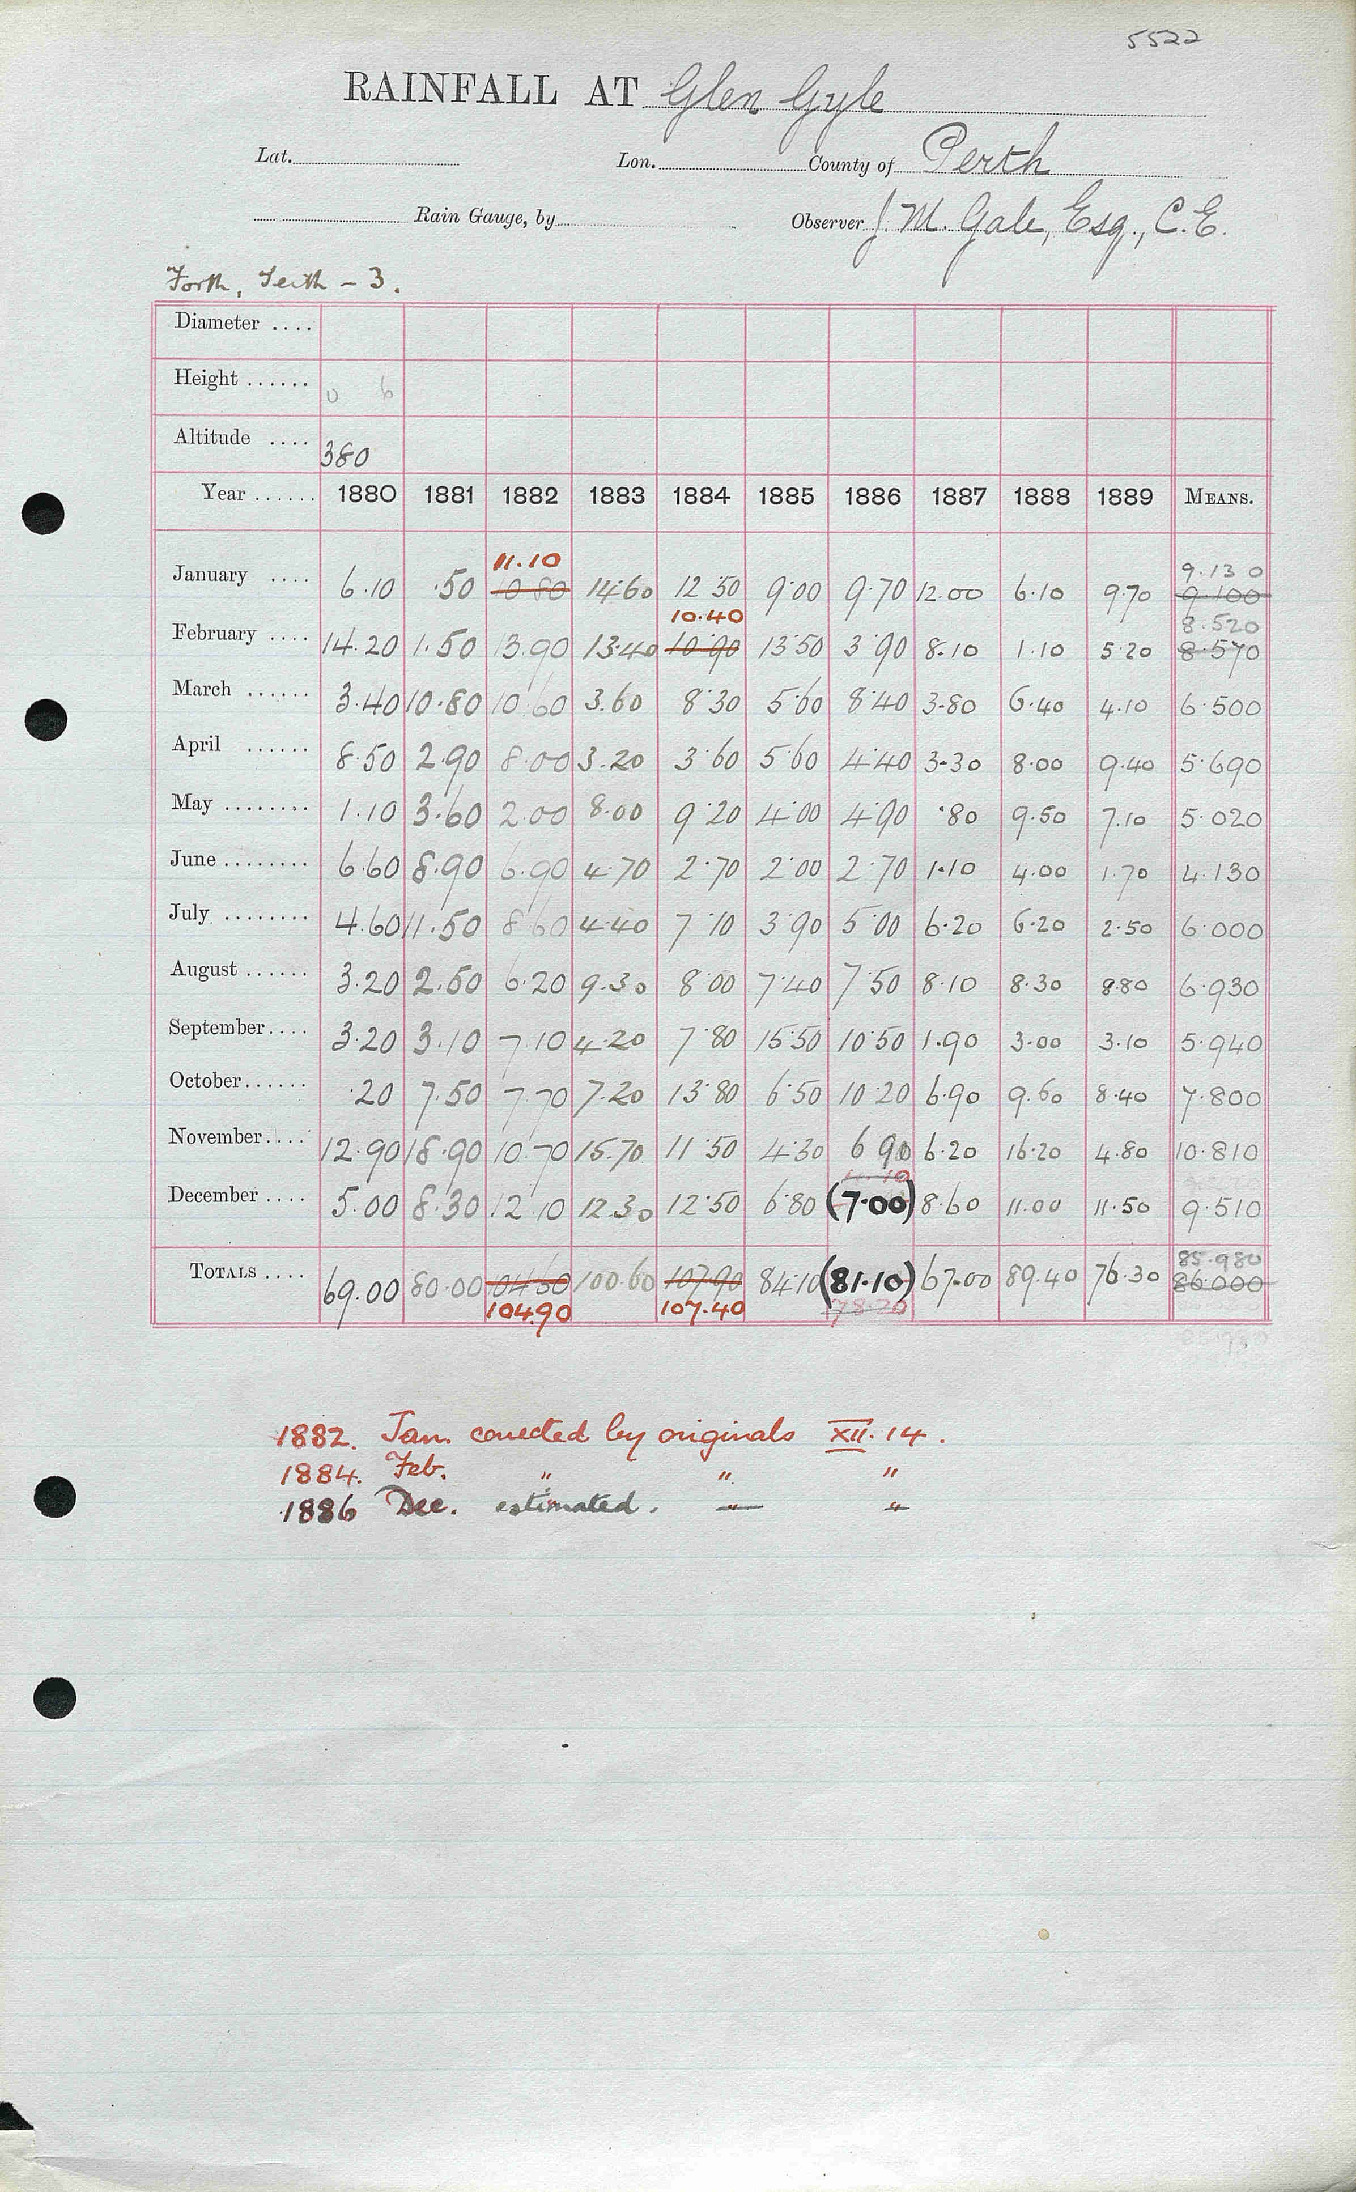 5522
RAINFALL AT Glen Gyle
Lat. Lon. County of Perth
Rain Gauge, by Observer J. M. Gale, Esq., C.E.
Forth, Teith - 3.
Diameter ....
Height ...... 0 6
Altitude .... 380
Year ...... 1880 1881 1882 1883 1884 1885 1886 1887 1888 1889 MEANS.
11.10 9.130
January .... 6.10 .50 10.80 14.60 12.50 9.00 9.70 12.00 6.10 9.70 9.100
10.40 8.520
February .... 14.20 1.50 13.90 13.40 10.90 13.50 3.90 8.10 1.10 5.20 8.570
March ...... 3.40 10.80 10.60 3.60 8.30 5.60 8.40 3.80 6.40 4.10 6.500
April ...... 8.50 2.90 8.00 3.20 3.60 5.60 4.40 3.30 8.00 9.40 5.690
May ........ 1.10 3.60 2.00 8.00 9.20 4.00 4.90 .80 9.50 7.10 5.020
June ........ 6.60 8.90 6.90 4.70 2.70 2.00 2.70 1.10 4.00 1.70 4.130
July ........ 4.60 11.50 8.60 4.40 7.10 3.90 5.00 6.20 6.20 2.50 6.000
August ...... 3.20 2.50 6.20 9.30 8.00 7.40 7.50 8.10 8.30 8.80 6.930
September .... 3.20 3.10 7.10 4.20 7.80 15.50 10.50 1.90 3.00 3.10 5.940
October ...... .20 7.50 7.70 7.20 13.80 6.50 10.20 6.90 9.60 8.40 7.800
November .... 12.90 18.90 10.70 15.70 11.50 4.30 6.90 6.20 16.20 4.80 10.810
December .... 5.00 8.30 12.10 12.30 12.50 6.80 (7.00) 8.60 11.00 11.50 9.510
85.980
TOTALS .... 69.00 80.00 104.60 100.60 107.90 84.10 (81.10) 67.00 89.40 76.30 86.000
104.90 107.40 78.20
85.980
1882. Jan. corrected by originals XII.14.
1884. Feb. " " "
1886 Dec. estimated. " "